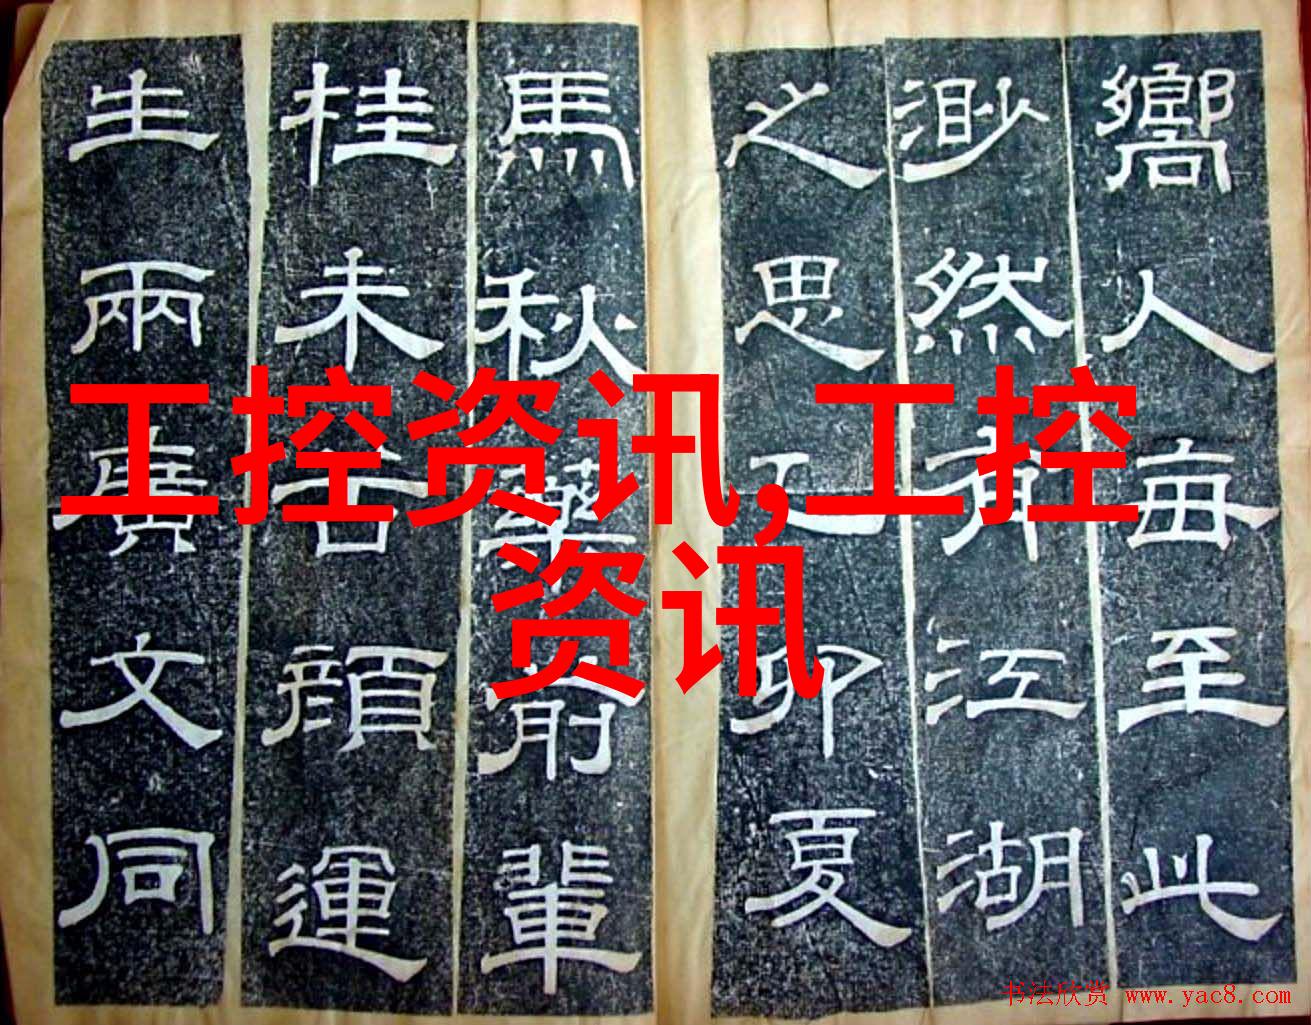 嚮人每至此
渺然有江湖
之思乙卯夏
馬秋藥前輩
桂未谷顏運
生兩廣文同
工控资讯,工控
资讯
书法欣赏 www.yac8.com